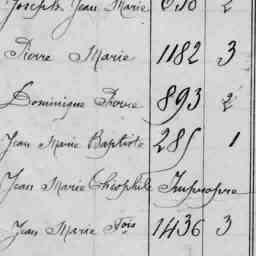 Joseph Jean Marie 2
Pierre Marie 1182 3
Dominique Pierre 893 2
Jean Marie Baptiste 285 1
Jean Marie Théophile Impropre
Jean Marie Fois 1436 3